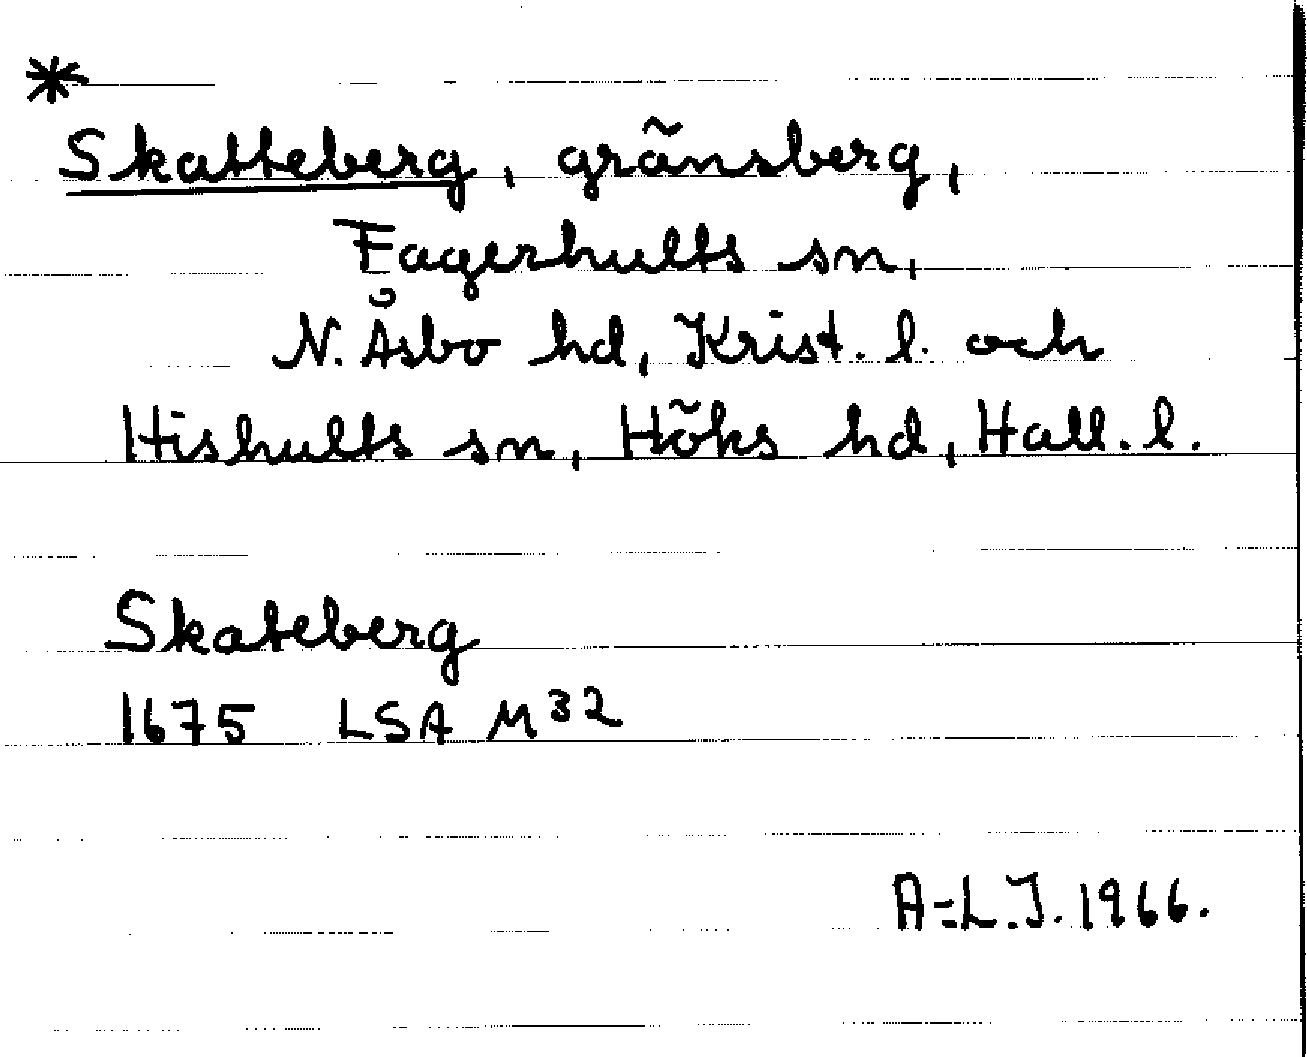 *
Skatteberg, gränsberg,
Fagerhults sn,
N. Åsbo hd, Krist. l. och
Hishults sn, Höks hd, Hall. l.
Skateberg
1675 LSA M32
A-L.J. 1966.